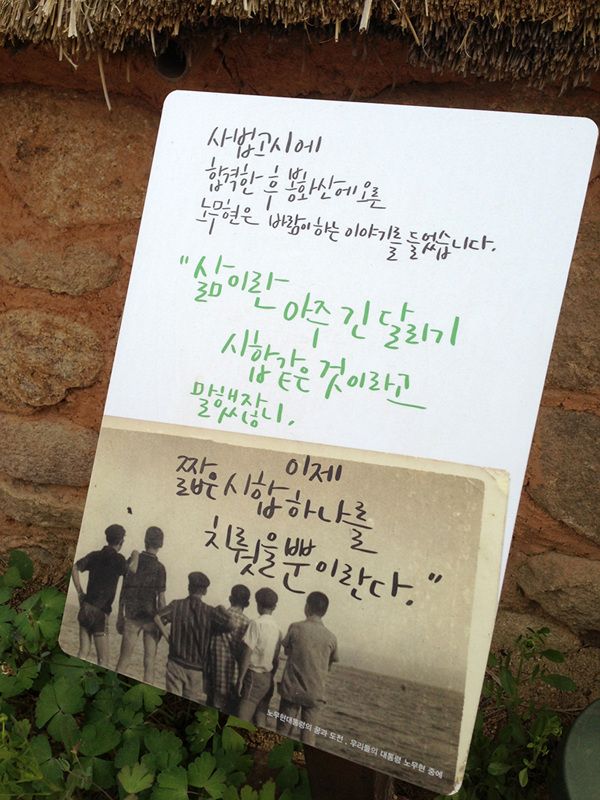 사법고시에
합격한 후 봉화산에 오른
노무현은 바람이 하는 이야기를 들었습니다.
"삶이란
아주 긴 달리기
시합같은 것이라고
말했잖니.
이제
짧은 시합 하나를
치뤘을 뿐이란다."
노무현대통령의 꿈과 도전 . 우리들의 대통령 노무현 중에